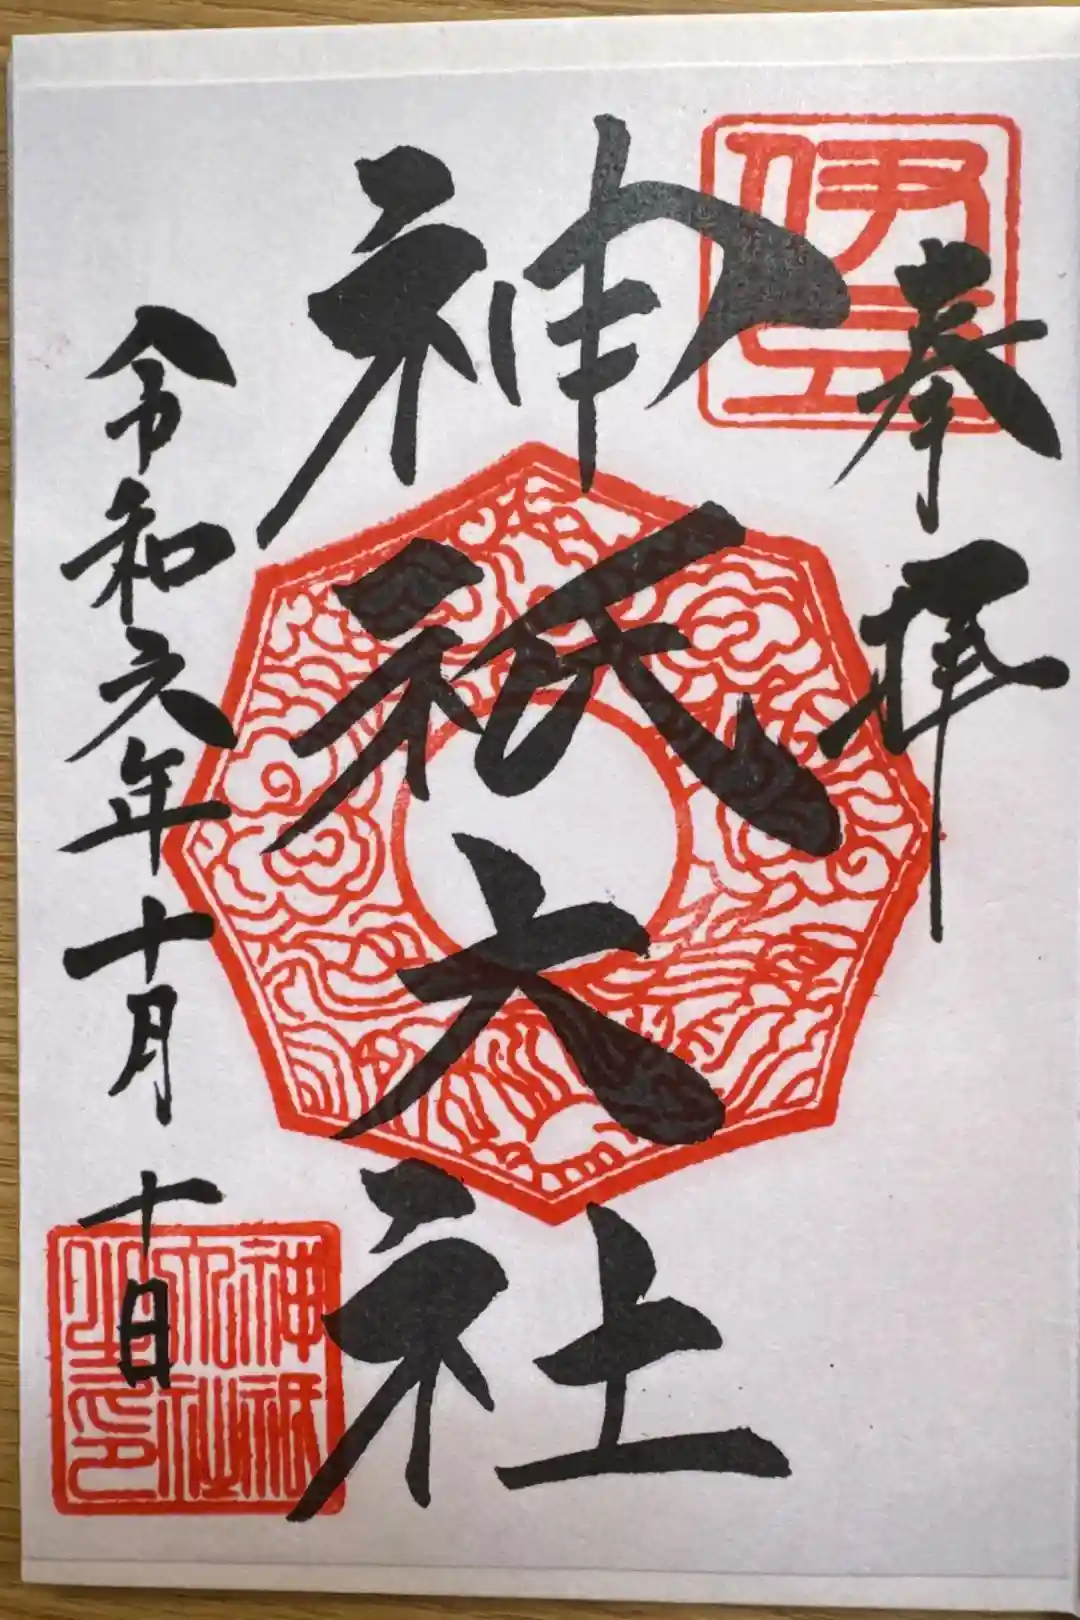 奉拝
伊豆
神祇大社
令和六年十月十日
神祇
大社
之印